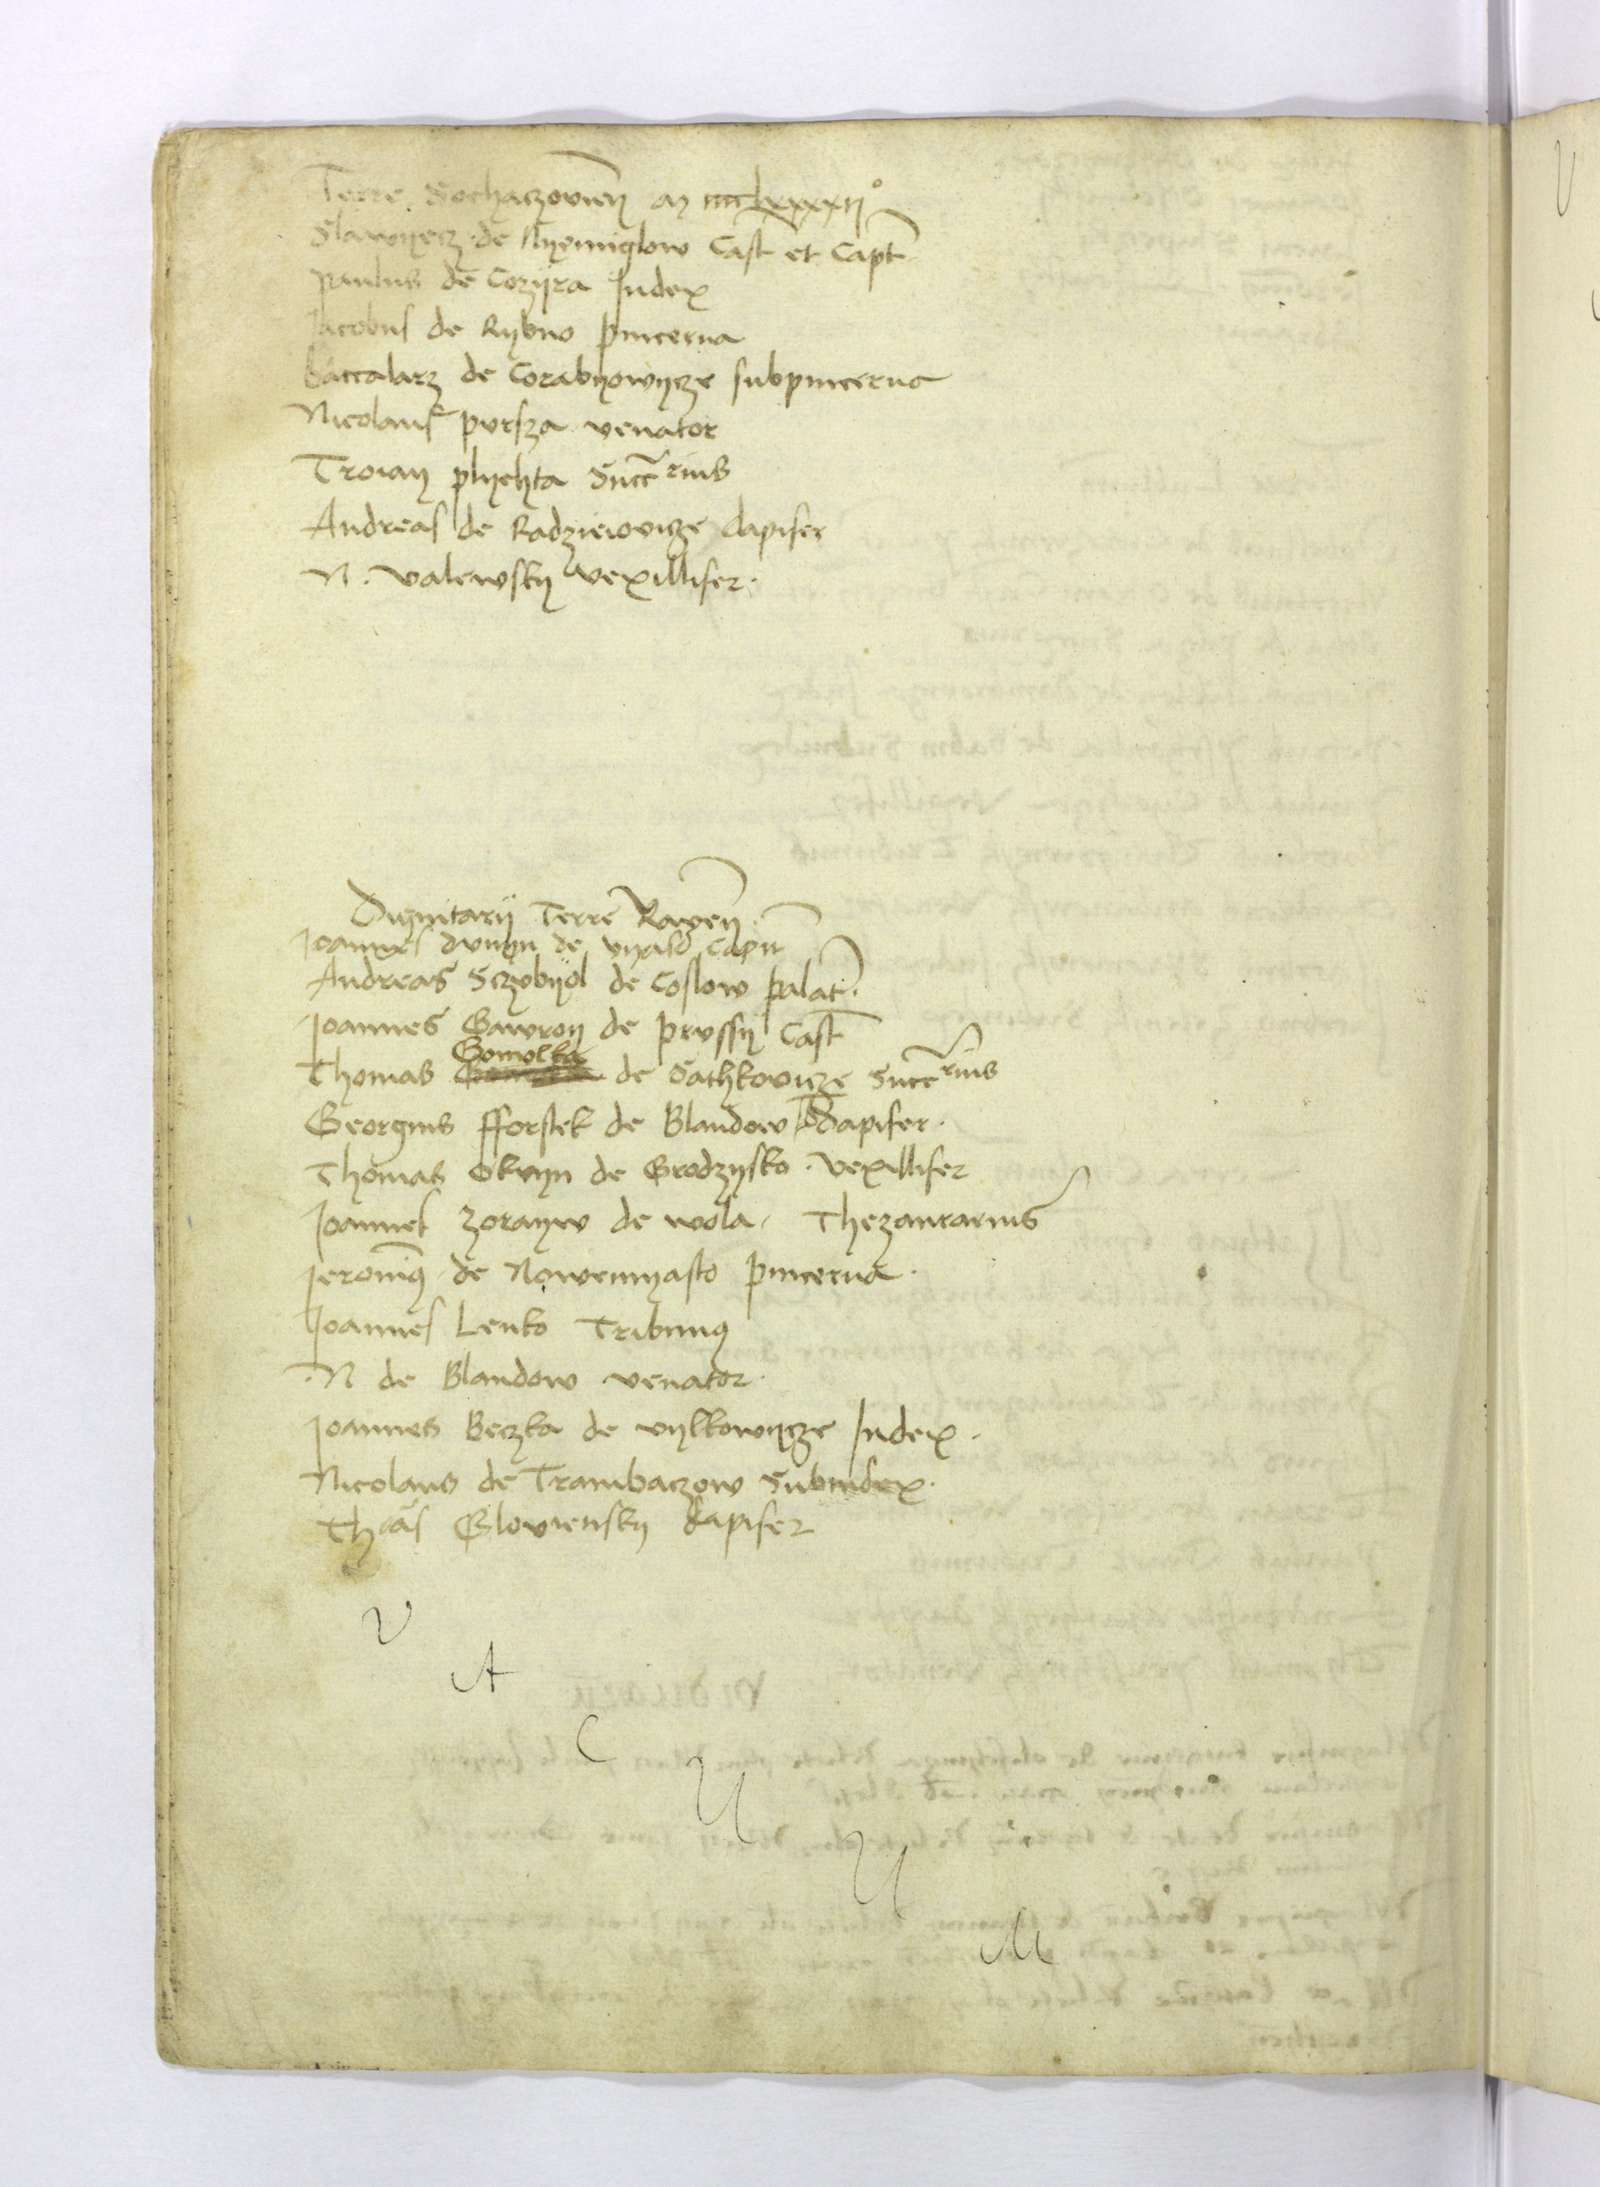 Terre Sochaczovien̄ an mcccclxxxxiiº
Slawyecz de Nyemiglow Cast et Capt
Paulus de Cozyra Judex
Jacobus de Rybno pincerna
Baccalarz de Corabyowycze subpincerna
Nicolaus pvrsza venator
Troian plychta Succ̄rius
Andreas de Radzieiovicze dapifer
N. valewsky vexillifer.
Dignitarij Terre Raven̄.
Joannes dvnyn de vyasd Capit
Andreas Sczvbyol de Coslow palat̄.
Joannes Gawron de prvssy Cast̄
Gomolka
Thomas de Sathkovicze Succ̄rius
Georgius fforstek de Blandow Dapifer.
Thomas Okvyn de Grodzysko. vexillifer
Joannes zoranw de wola. Thezaurarius
Jeronim9 de Nowemyasto pincerna.
Joannes Lenko Tribun9
.N de Blandow venator.
Joannes Beczka de vylkowycze Judex.
Nicolaus de Trambaczow Subiudex.
Thās Gloviensky dapifer
V
A
C
U
U
M